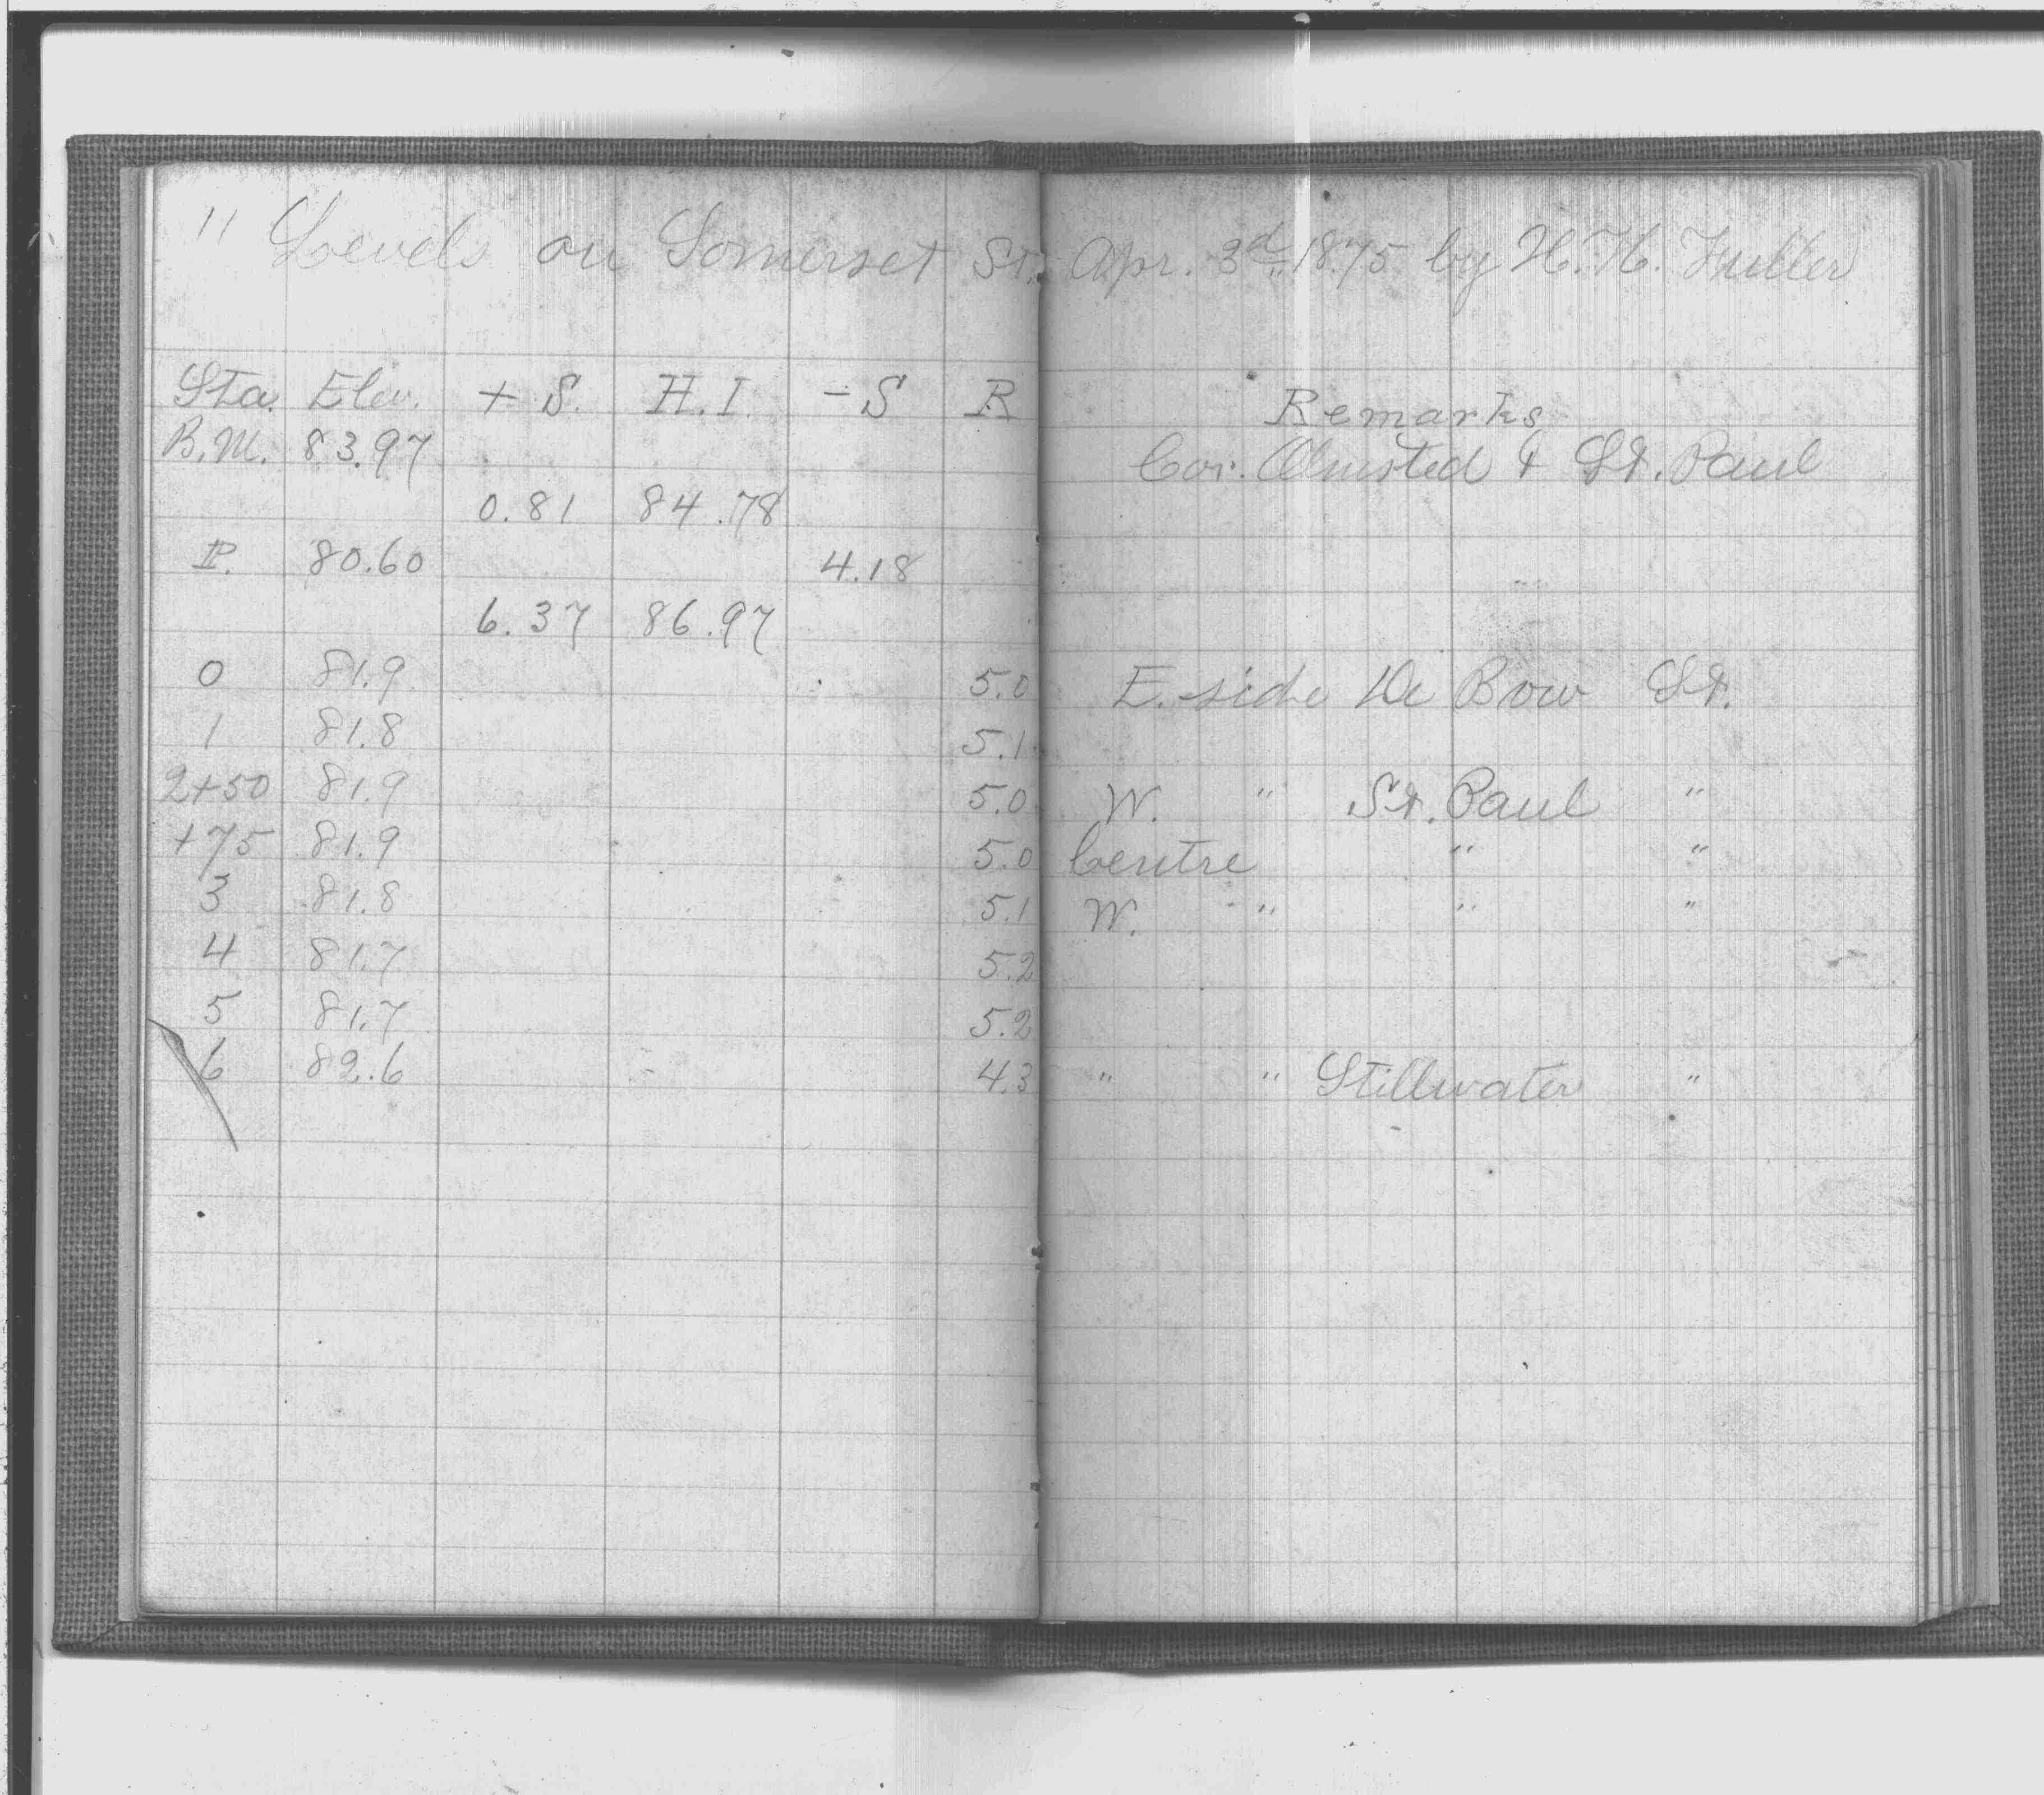 11 Levels on Somerset St. Apr. 3d 1875 by H. H. Fuller
Sta. Elev. + S. H.I. - S R Remarks
B.M. 83.97 Cor. Olmsted & St. Paul
0.81 84.78
P. 80.60 4.18
6.37 86.97
0 81.9 5.0 E. side De Bow St.
1 81.8 5.1
2+50 81.9 5.0 W. " St. Paul "
+75 81.9 5.0 Centre " "
3 81.8 5.1 W. " " "
4 81.7 5.2
5 81.7 5.2
6 82.6 4.3 " " Stillwater "